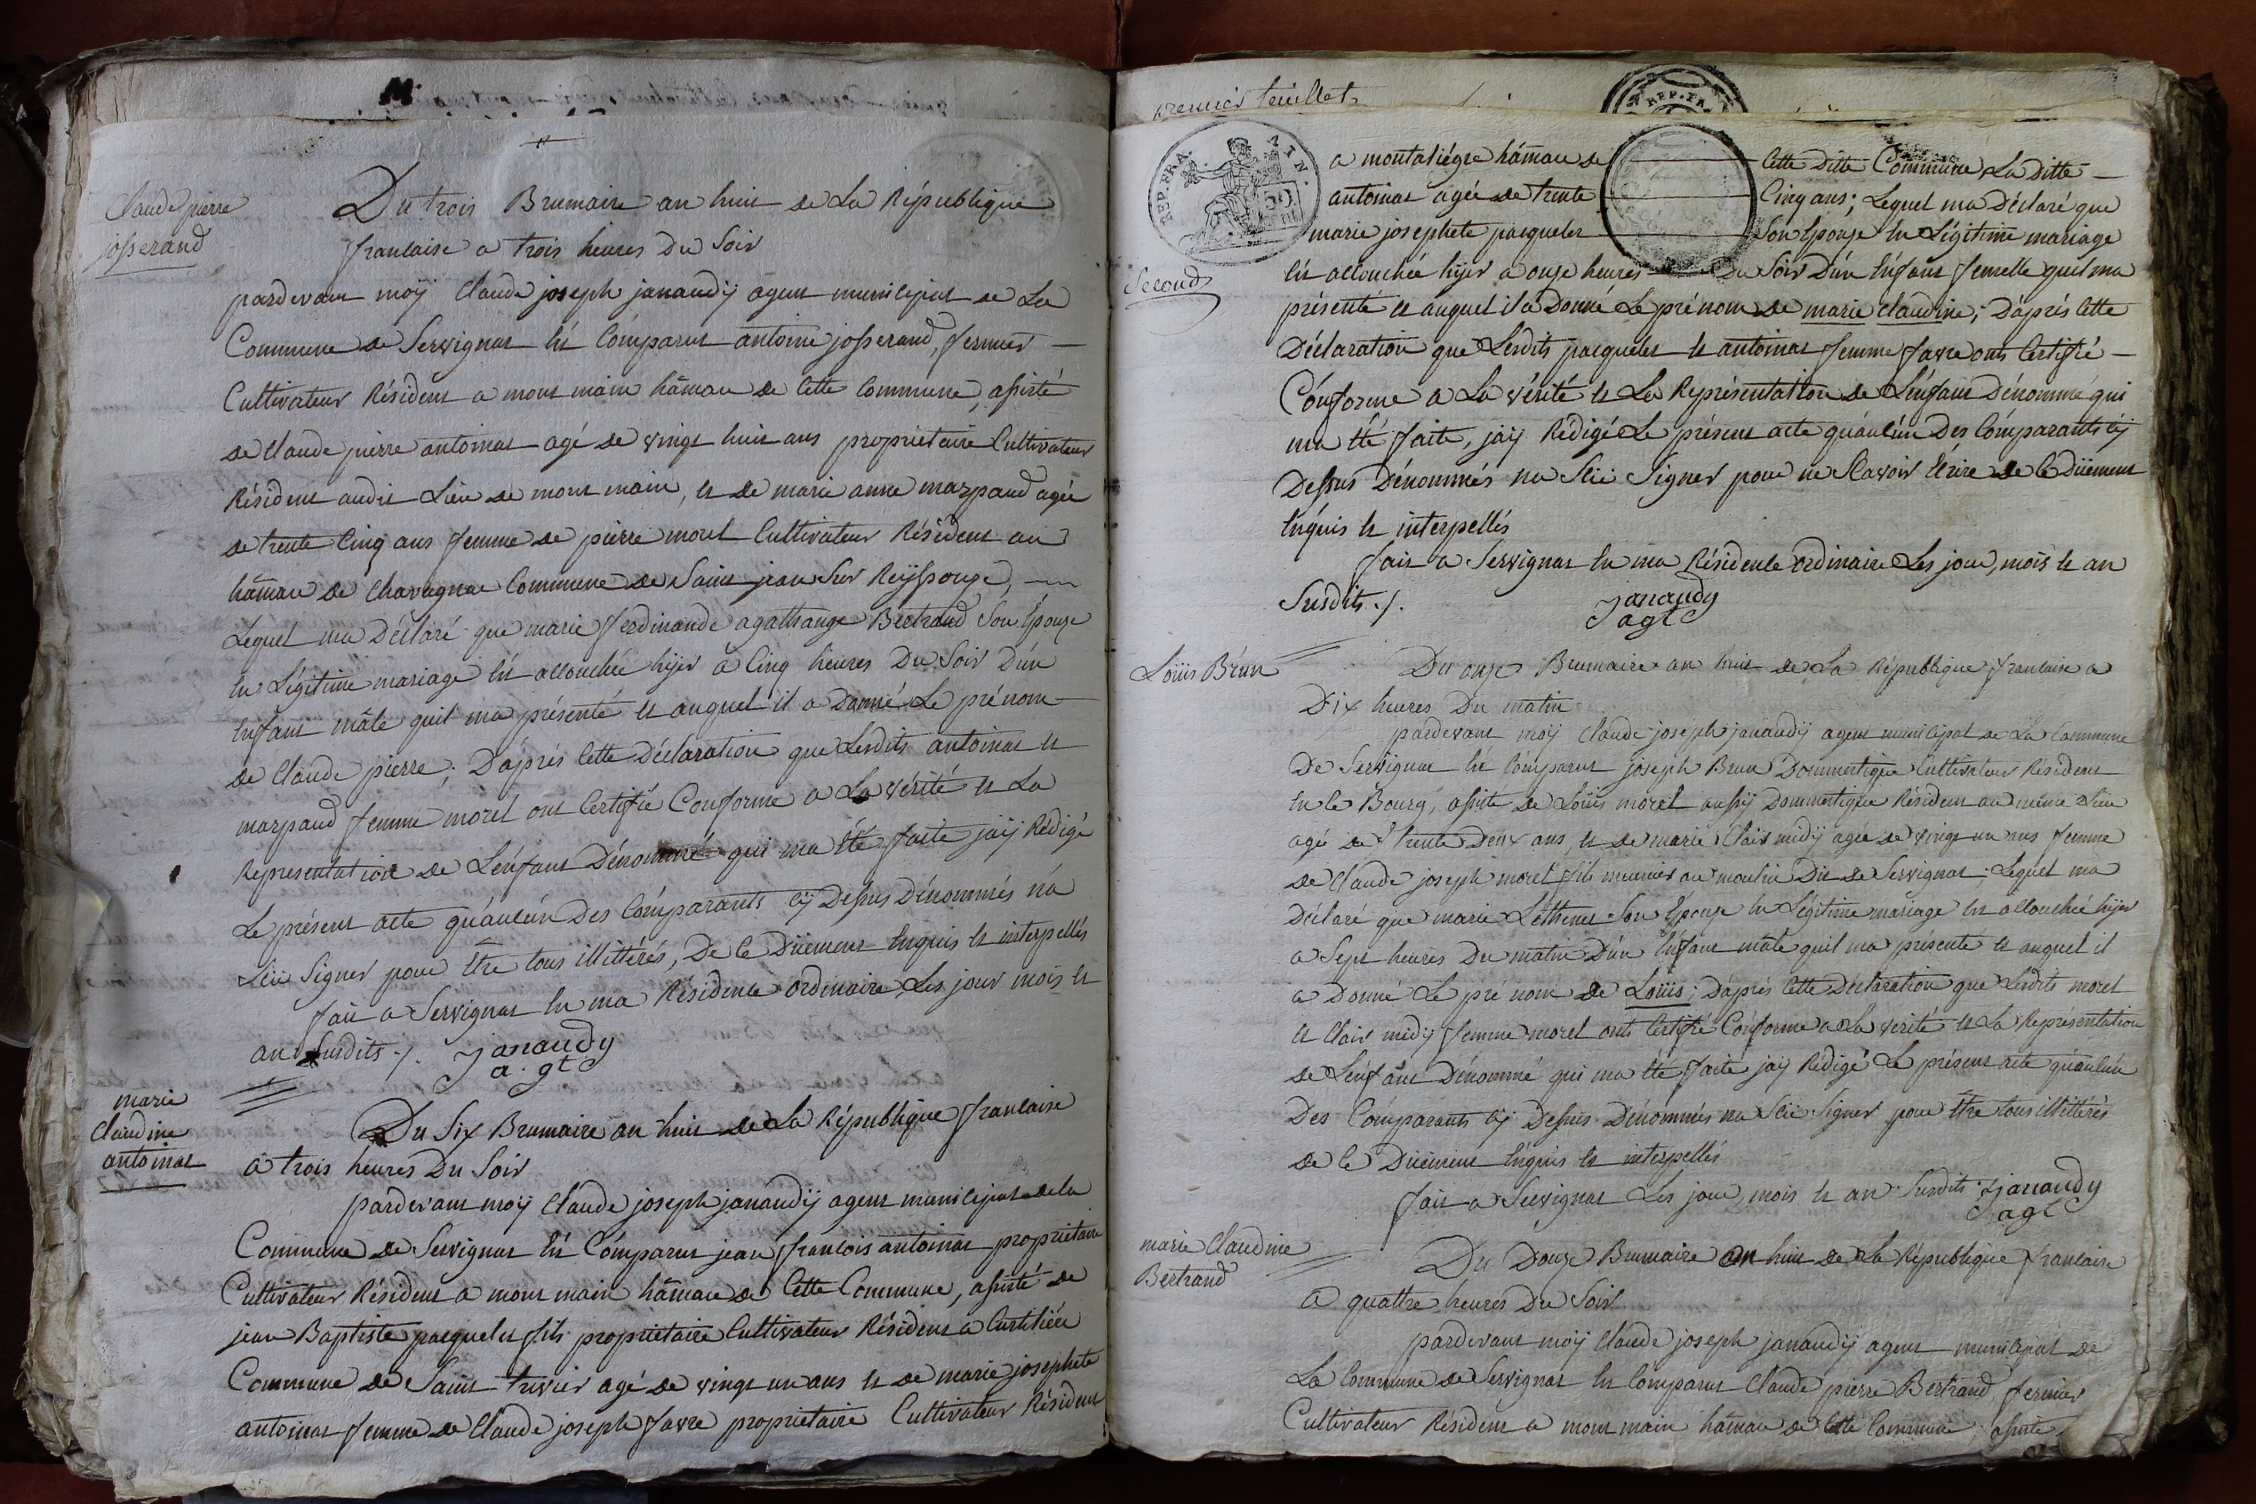 Claude pierre
josserand
Du trois Brumaire an huit de La République
francaise a trois heures Du Soir
pardevant moÿ Claude joseph janaudÿ agent municipal de La
Commune de Servignat Est Comparut antoine josserand, fermier
Cultivateur Résident a mont main hâmau de Cette Commune, assisté
de Claude pierre antoinat agé de vingt huit ans proprietaire Cultivateur
Résident audit Lieu de mont main, et de marie anne marpaud agée
de trente Cinq ans femme de pierre morel Cultivateur Résident au
hâmau de Chavagnac Commune de Saint jean Sur Reÿssouze,
Lequel ma Déclaré que marie ferdinande agathange Bertrand Son Epouse
En Légitime mariage Est accouchée hÿer à Cinq heures Du Soir D'un
Enfant mâle quil ma présenté et auquel il a Donné Le prénom
de Claude pierre; D'aprés Cette Déclaration que Lesdits antoinat et
marpaud femme morel ont Certifié Conforme a La vérité et La
Representation de L'enfant Dénommé qui ma Eté faite jaÿ Rédigé
Le présent acte qu'aucun Des Comparants cÿ Dessus Dénommés n'a
Scu Signer pour Etre tous illittérés, De Ce Düement Enquis et interpellés
fait a Servignat En ma Résidence ordinaire, Les jour mois et
an Susdits ./. janaudy
a. gt
marie
Claudine
antoinat
Du Six Brumaire an huit de La République francaise
à trois heures Du Soir
pardevant moÿ Claude joseph janaudÿ agent municipal de la
Commune de Servignat Est Comparut jean francois antoinat proprietaire
Cultivateur Résident a mont main hâmau de Cette Commune, assisté de
jean Baptiste pacquelet fils proprietaire Cultivateur Résident a
Commune de Saint trivier agé de vingt un ans et de marie josephete
antoinat femme de Claude joseph favre proprietaire Cultivateur Résident
premier feuillet
REP. FRA.
REP. FRA.
a montaliégre hâmau de Cette Ditte Commune La Ditte
antoinat agée de trente Cinq ans; Lequel ma Déclaré que
marie josephete pacquelet Son Epouse En Légitime mariage
Second
Est accouchée hÿer a onze heures Du Soir D'un Enfant femelle quil ma
présenté et auquel il a Donné Le prénom de marie Claudine; D'aprés Cette
Déclaration que Lesdits pacquelet et antoinat femme favre ont Certifié
Conforme a La vérité et La Représentation de L'enfant Dénommé qui
ma Eté faite, jaÿ Rédigé Le présent acte qu'aucun Des Comparants cÿ
Dessus Dénommés na Scu Signer pour ne Scavoir Ecrire de Ce Düement
Enquis et interpellés
fait a Servignat En ma Résidence ordinaire Les jour, mois et an
Susdits ./. janaudy
agt
Loüis Brun
Du onze Brumaire an huit de La République francaise a
Dix heures Du matin
pardevant moÿ Claude joseph janaudÿ agent municipal de La Commune
De Servignat Est Comparut joseph Brun Dommestique Cultivateur Resident
En Ce Bourg, assisté de Loüis morel aussÿ Dommestique Résident au même Lieu
agé de trente Deux ans, et de marie Clair midÿ agée de vingt un ans femme
de Claude joseph morel fils meunier au moulin Dit de Servignat; Lequel ma
Déclaré que marie Son Epouse En Légitime mariage Est accouchée hÿer
a Sept heures Du matin D'un Enfant mâle quil ma présenté et auquel il
a Donné Le prénom de Loüis; D'aprés Cette Déclaration que Lesdits morel
et Clair midÿ femme morel ont Certifié Conforme a La vérité et La Représentation
de L'enfant Dénommé qui ma Eté faite jaÿ Rédigé Le présent acte qu'aucun
Des Comparants cÿ Dessus Dénommés na Scu Signer pour Etre tous illittérés
de Ce Düement Enquis et interpellés
fait a Servignat Les jour, mois et an Susdits janaudy
agt
marie Claudine
Bertrand
Du Douze Brumaire an huit de La République francaise
a quattre heures Du Soir
pardevant moÿ Claude joseph janaudÿ agent municipal de
La Commune de Servignat Est Comparut Claude pierre Bertrand fermier
Cultivateur Résident a mont main hâmau de Cette Commune assisté